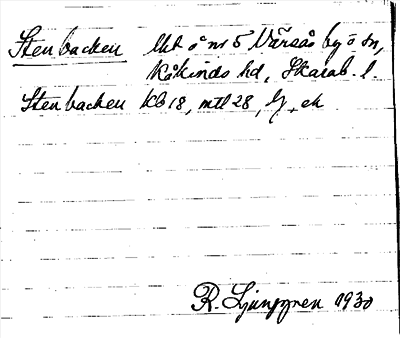 Stenbacken Ut å nr 5 Värsås by o sn,
Kåkinds hd, Skarab. l.
Stenbacken KB 18, mtl 28, lj, ek
R. Ljunggren 1930